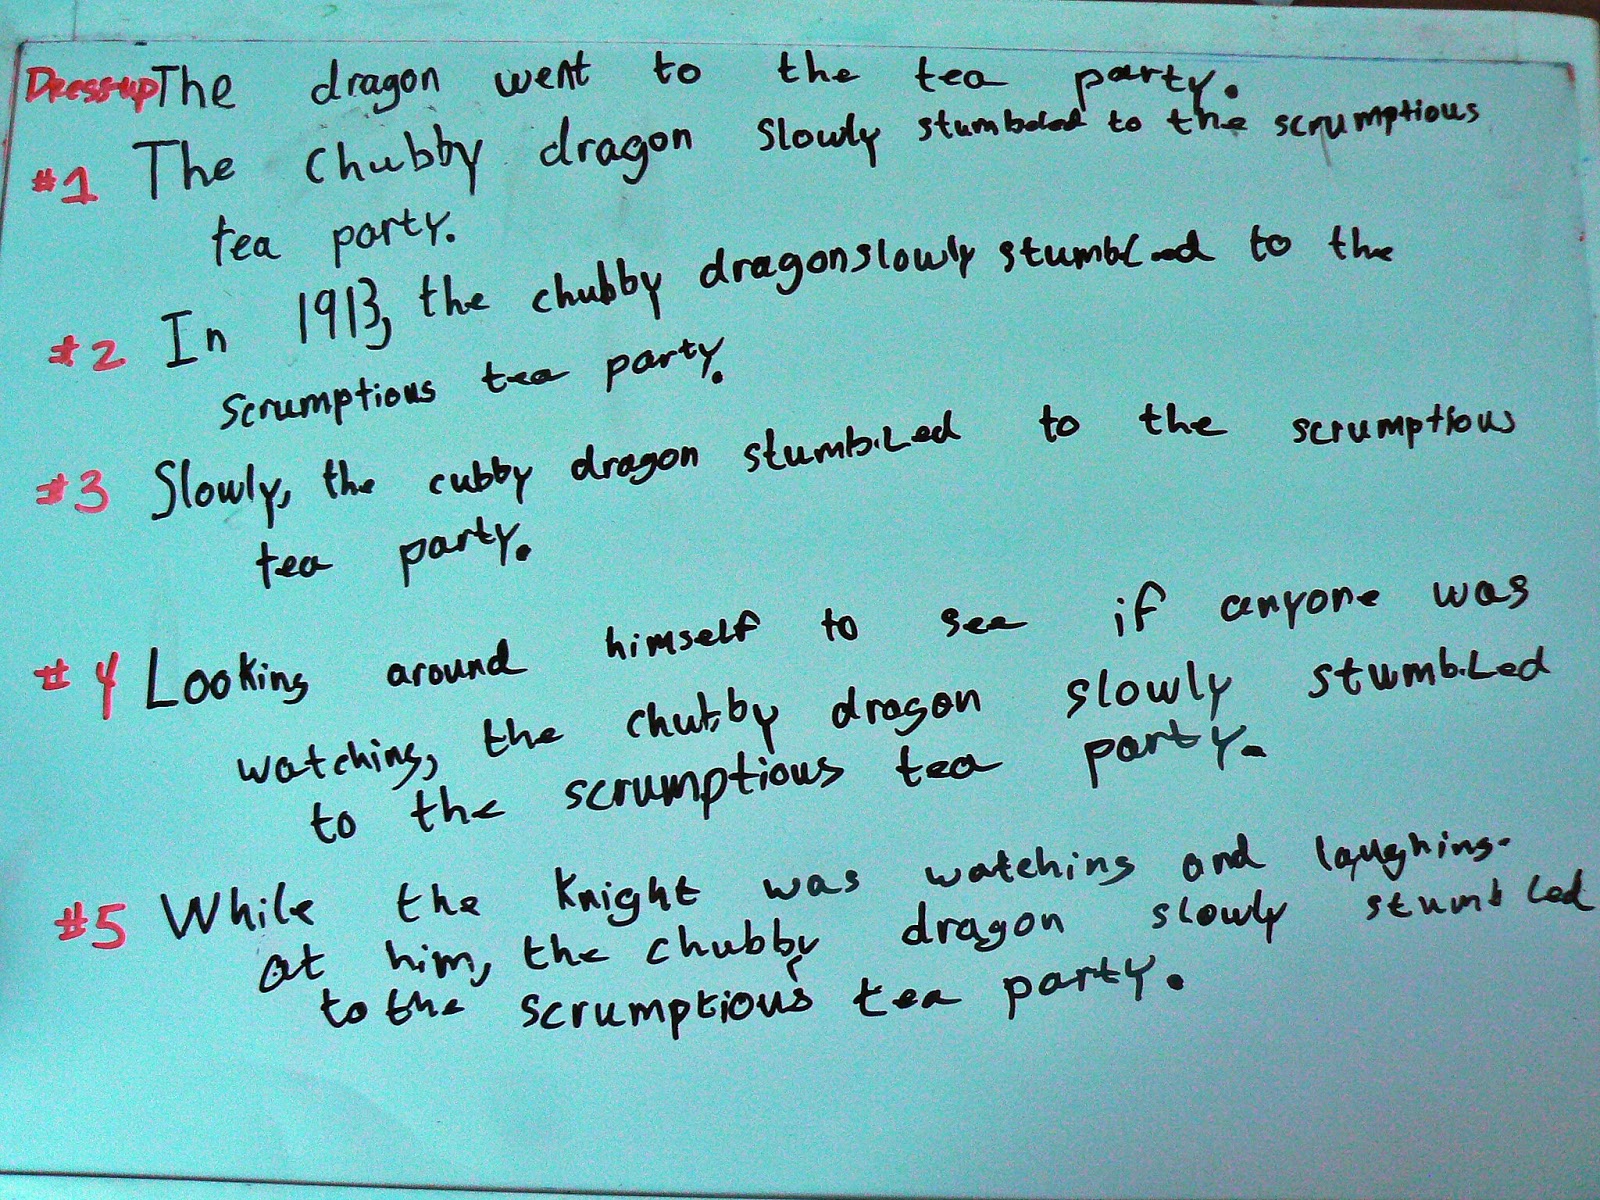 Dress-up The dragon went to the tea party.
#1 The chubby dragon slowly stumbled to the scrumptious
tea party.
#2 In 1913, the chubby dragon slowly stumbled to the
scrumptious tea party.
#3 Slowly, the cubby dragon stumbled to the scrumptious
tea party.
#4 Looking around himself to see if anyone was
watching, the chubby dragon slowly stumbled
to the scrumptious tea party.
#5 While the knight was watching and laughing
at him, the chubby dragon slowly stumbled
to the scrumptious tea party.